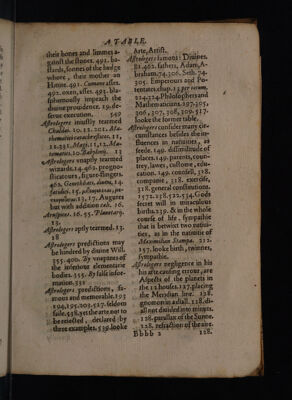 A TABLE.
their bones and limmes a-
gainst the stones. 491. ba-
stards, sonnes of the badge
whore, their mother an
Harlot. 491. Cumane asses.
492. oxen, asses. 491. bla-
sphemously impeach the
diuine prouidence. 19. de-
serue execution. 549
Astrologers insultly tearmed
Chaldai. 10. 12. 201. Ma-
thematici vanæ
12. 231. Magi. 11, 12.
tomantes. 10. Babylonij. 13
Astrologers vnaptly tearmed
wizards. 14. 462. progno-
sticatours, figure-flingers.
462. Genethliaci.
15.
13. 17. Augurs
but with addition
16. 55. Planetarij.
13.
Astrologers aptly tearmed. 13.
18
Astrologers predictions may
be hindred by diuine Will.
355. 400. By vnaptnes of
the inferiour elementarie
bodies. 355. By false infor-
mation. 331
Astrologers predictions, fa-
mous and memorable. 193
194, 195, 203, 527. seldom
faile. 538. yet the arte not to
be reiected, declared by
three examples. 539. looke
Arte, Artist.
Astrologers famous: Diuines.
81. 462. fathers, Adam, A-
braham. 74. 306. Seth. 74.
305. Emperours and Po-
tentates. chap. 13. per totum.
224, 524. Philosophers and
Mathematicians. 197, 305,
306, 307, 308, 309. 517.
looke the former table.
Astrologers consider many cir-
cumstances besides the in-
fluences in natiuities, as
seede. 149. dissimitude of
places. 149. parents, coun-
trey, lawes, custome, edu-
cation. 149. counsell, 318.
companie, 318. exercise,
318. generall constitutions.
157. 258. 522. 534. Gods
secret will in miraculous
births. 239. & in the whole
course of life, sympathie
that is betwixt two natiui-
ties, as in the natiuitie of
Maximilian Stampa. 212.
157. looke birth, twinnes,
sympathie.
Astrologers negligence in his
his arte causing errour, are
Aspects of the planets in
the 12. houses. 127. placing
the Meridian line. 128.
gnomon in a dial. 128. di-
all not diuided into minuts.
128. parallax of the Sunne.
128. refraction of the aire.
Bbbb 2
128.